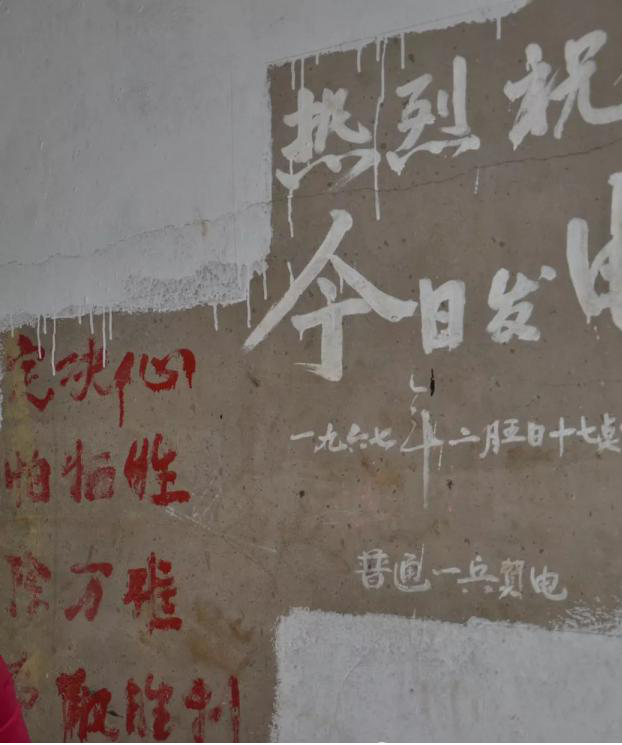 热烈祝
今日发电
一九六七年二月五日十七点
普通一兵賀电
定决心
怕牺牲
除万难
取胜利